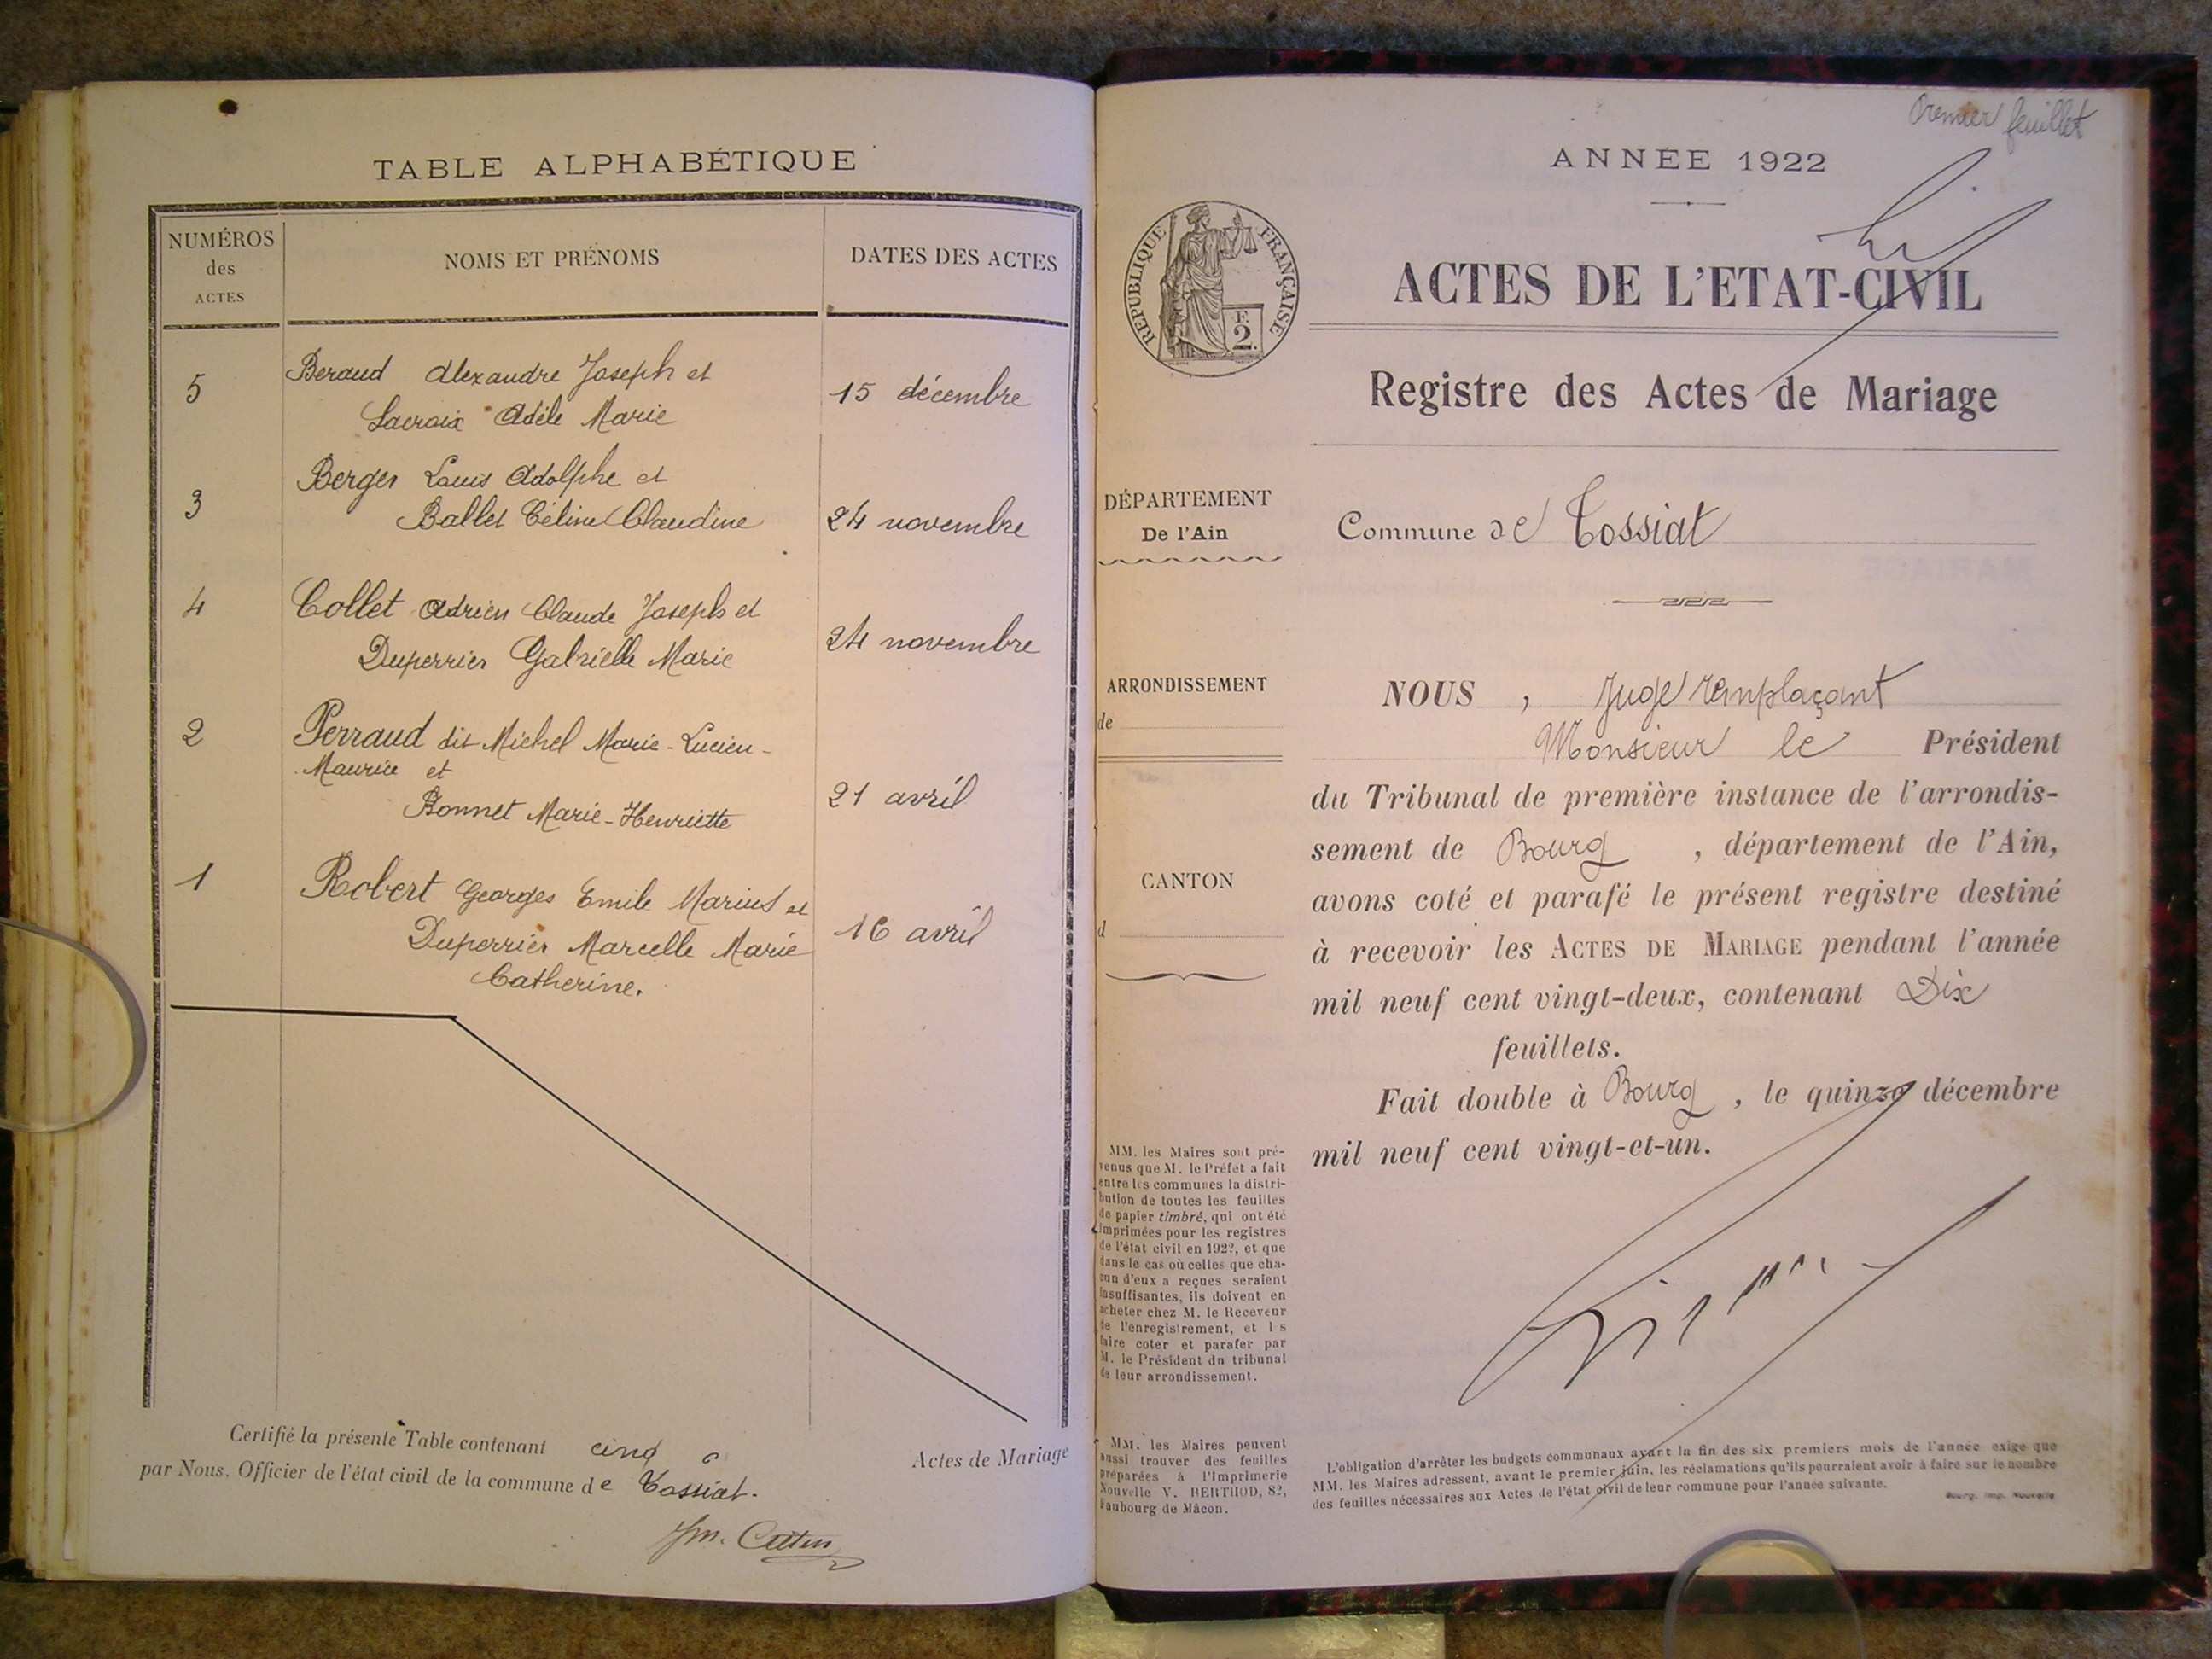 TABLE ALPHABÉTIQUE
NUMÉROS
des
ACTES
NOMS ET PRÉNOMS
DATES DES ACTES
5
Beraud Alexandre Joseph et
Lacroix Adèle Marie
15 décembre
3
Berger Louis Adolphe et
Ballet Céline Claudine
24 novembre
4
Collet Adrien Claude Joseph et
Duperrier Gabrielle Marie
24 novembre
2
Perraud dit Michel Marie-Lucien-
Maurice et
Bonnet Marie-Henriette
21 avril
1
Robert Georges Emile Marius et
Duperrier Marcelle Marie
Catherine.
16 avril
Certifié la présente Table contenant cinq
par Nous, Officier de l'état civil de la commune de Tossiat.
Actes de Mariage
Premier feuillet
ANNÉE 1922
RÉPUBLIQUE FRANÇAISE
F.
2.
ACTES DE L'ETAT-CIVIL
Registre des Actes de Mariage
DÉPARTEMENT
De l'Ain
Commune de Tossiat
ARRONDISSEMENT
de
CANTON
d
NOUS , Juge remplaçant
Monsieur le Président
du Tribunal de première instance de l'arrondis-
sement de Bourg , département de l'Ain,
avons coté et parafé le présent registre destiné
à recevoir les ACTES DE MARIAGE pendant l'année
mil neuf cent vingt-deux, contenant Dix
feuillets.
Fait double à Bourg , le quinze décembre
mil neuf cent vingt-et-un.
MM. les Maires sont pré-
venus que M. le Préfet a fait
entre les communes la distri-
bution de toutes les feuilles
de papier timbré, qui ont été
imprimées pour les registres
de l'état civil en 1922, et que
dans le cas où celles que cha-
cun d'eux a reçues seraient
insuffisantes, ils doivent en
acheter chez M. le Receveur
de l'enregistrement, et les
faire coter et parafer par
M. le Président du tribunal
de leur arrondissement.
MM. les Maires peuvent
aussi trouver des feuilles
préparées à l'Imprimerie
Nouvelle V. BERTHOD, 82,
Faubourg de Mâcon.
L'obligation d'arrêter les budgets communaux avant la fin des six premiers mois de l'année exige que
MM. les Maires adressent, avant le premier juin, les réclamations qu'ils pourraient avoir à faire sur le nombre
des feuilles nécessaires aux Actes de l'état civil de leur commune pour l'année suivante.
Bourg, Imp. Nouvelle